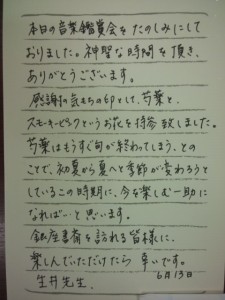 本日の音楽鑑賞会をたのしみにして
おりました。神聖な時間を頂き、
ありがとうございます。
感謝の気もちの印として、芍薬と、
スモーキーピンクというお花を持参致しました。
芍薬はもうすぐ旬が終わってしまう、との
ことで、初夏から夏へと季節が変わろうと
しているこの時期に、今を楽しむ一助に
なれば…と思います。
銀座書斎を訪れる皆様に、
楽しんでいただけたら 幸いです。
生井先生、 6月13日